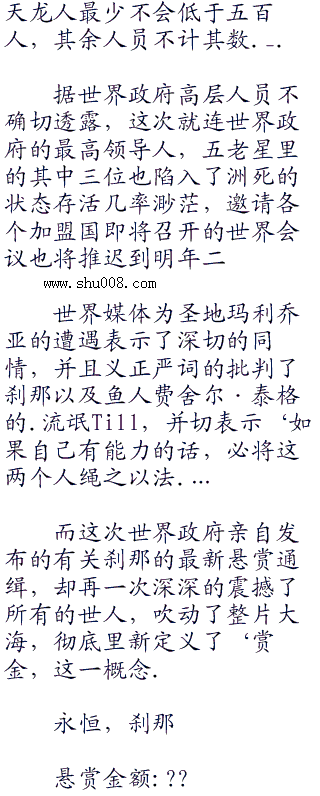 天龙人最少不会低于五百
人，其余人员不计其数._.
据世界政府高层人员不
确切透露，这次就连世界政
府的最高领导人，五老星里
的其中三位也陷入了洲死的
状态存活几率渺茫，邀请各
个加盟国即将召开的世界会
议也将推迟到明年二
www.shu008.com
世界媒体为圣地玛利乔
亚的遭遇表示了深切的同
情，并且义正严词的批判了
刹那以及鱼人费舍尔·泰格
的.流氓Till，并切表示‘如
果自己有能力的话，必将这
两个人绳之以法....
而这次世界政府亲自发
布的有关刹那的最新悬赏通
缉，却再一次深深的震撼了
所有的世人，吹动了整片大
海，彻底里新定义了‘赏
金，这一概念.
永恒，刹那
悬赏金额:??